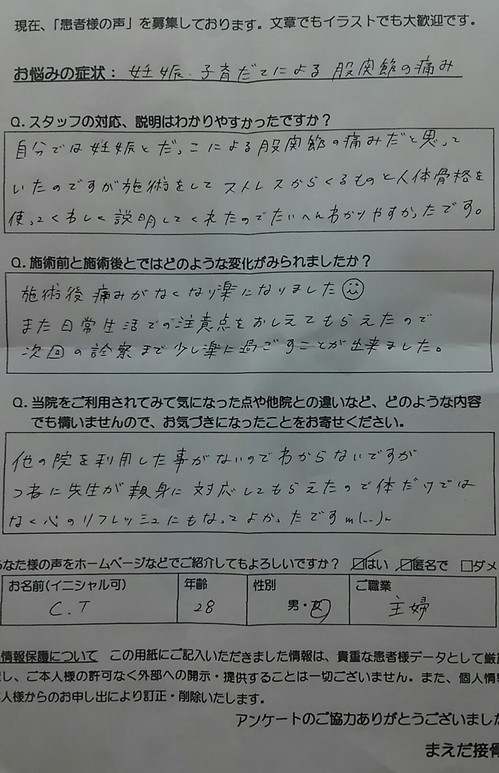 現在、「患者様の声」を募集しております。文章でもイラストでも大歓迎です。
お悩みの症状： 妊娠、子育だてによる 股関節の痛み
Q. スタッフの対応、説明はわかりやすかったですか？
自分では妊娠とだっこによる股関節の痛みだと思って
いたのですが施術をして ストレスからくるものと人体骨格を
使ってくわしく説明してくれたのでたいへんわかりやすかったです。
Q. 施術前と施術後とではどのような変化がみられましたか？
施術後痛みがなくなり楽になりました☺
また日常生活での注意点をおしえてもらえたので
次回の診察まで少し楽に過ごすことが出来ました。
Q. 当院をご利用されてみて気になった点や他院との違いなど、どのような内容
でも構いませんので、お気づきになったことをお寄せください。
他の院を利用した事がないのでわからないですが
つねに先生が親身に対応してもらえたので体だけでは
なく心のリフレッシュにもなってよかったですm(_ _)m
あなた様の声をホームページなどでご紹介してもよろしいですか？ ☑はい ☑匿名で □ダメ
お名前(イニシャル可) 年齢 性別 ご職業
C.T 28 男・女 主婦
情報保護について この用紙にご記入いただきました情報は、貴重な患者様データとして厳
し、ご本人様の許可なく外部への開示・提供することは一切ございません。また、個人情
人様からのお申し出により訂正・削除いたします。
アンケートのご協力ありがとうございまし
まえだ接骨